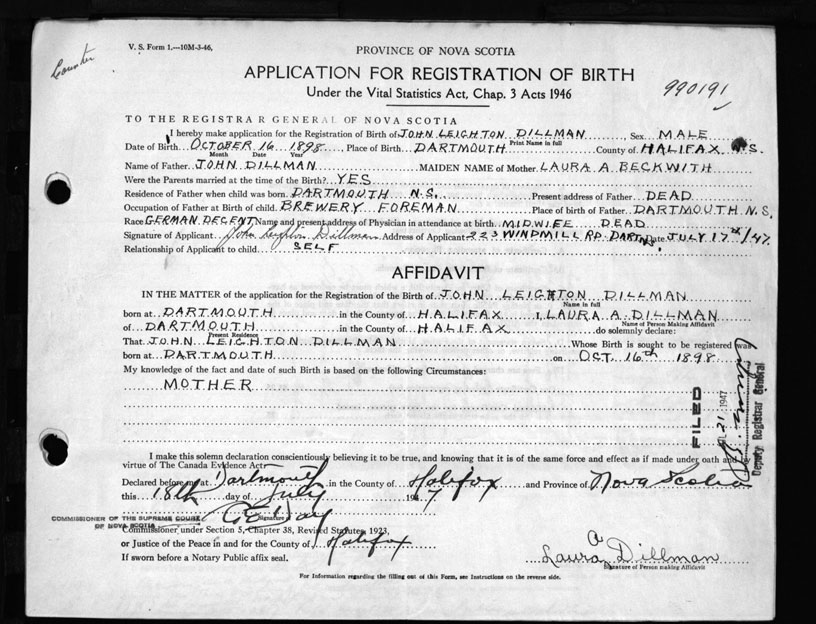 Counter
V. S. Form 1.—10M-3-46.
PROVINCE OF NOVA SCOTIA
APPLICATION FOR REGISTRATION OF BIRTH
Under the Vital Statistics Act, Chap. 3 Acts 1946
990191
TO THE REGISTRAR GENERAL OF NOVA SCOTIA
I hereby make application for the Registration of Birth of JOHN LEIGHTON DILLMAN Sex MALE
Print Name in full
Date of Birth OCTOBER 16 1898, Place of Birth DARTMOUTH County of HALIFAX N.S.
Month Date Year
Name of Father JOHN DILLMAN MAIDEN NAME of Mother LAURA A BECKWITH
Were the Parents married at the time of the Birth? YES
Residence of Father when child was born DARTMOUTH N.S. Present address of Father DEAD
Occupation of Father at Birth of child BREWERY FOREMAN Place of birth of Father DARTMOUTH N.S.
Race GERMAN DECENT Name and present address of Physician in attendance at birth MIDWIFE DEAD
Signature of Applicant John Leighton Dillman Address of Applicant 223 WINDMILL RD. DART. N.S. Date JULY 17th/47
Relationship of Applicant to child SELF
AFFIDAVIT
IN THE MATTER of the application for the Registration of the Birth of JOHN LEIGHTON DILLMAN
Name in full
born at DARTMOUTH in the County of HALIFAX I, LAURA A. DILLMAN
Name of Person Making Affidavit
of DARTMOUTH in the County of HALIFAX do solemnly declare:
Present Residence
That JOHN LEIGHTON DILLMAN Whose Birth is sought to be registered was
born at DARTMOUTH on OCT. 16th 1898
My knowledge of the fact and date of such Birth is based on the following Circumstances:
MOTHER
FILED
21 1947
Deputy Registrar General
I make this solemn declaration conscientiously believing it to be true, and knowing that it is of the same force and effect as if made under oath and by
virtue of The Canada Evidence Act.
Declared before me at Dartmouth in the County of Halifax and Province of Nova Scotia
this 18th day of July 1947
Signature
COMMISSIONER OF THE SUPREME COURT
OF NOVA SCOTIA
Commissioner under Section 5, Chapter 38, Revised Statutes, 1923,
or Justice of the Peace in and for the County of Halifax
If sworn before a Notary Public affix seal.
Laura A Dillman
Signature of Person making Affidavit
For Information regarding the filling out of this Form, see Instructions on the reverse side.